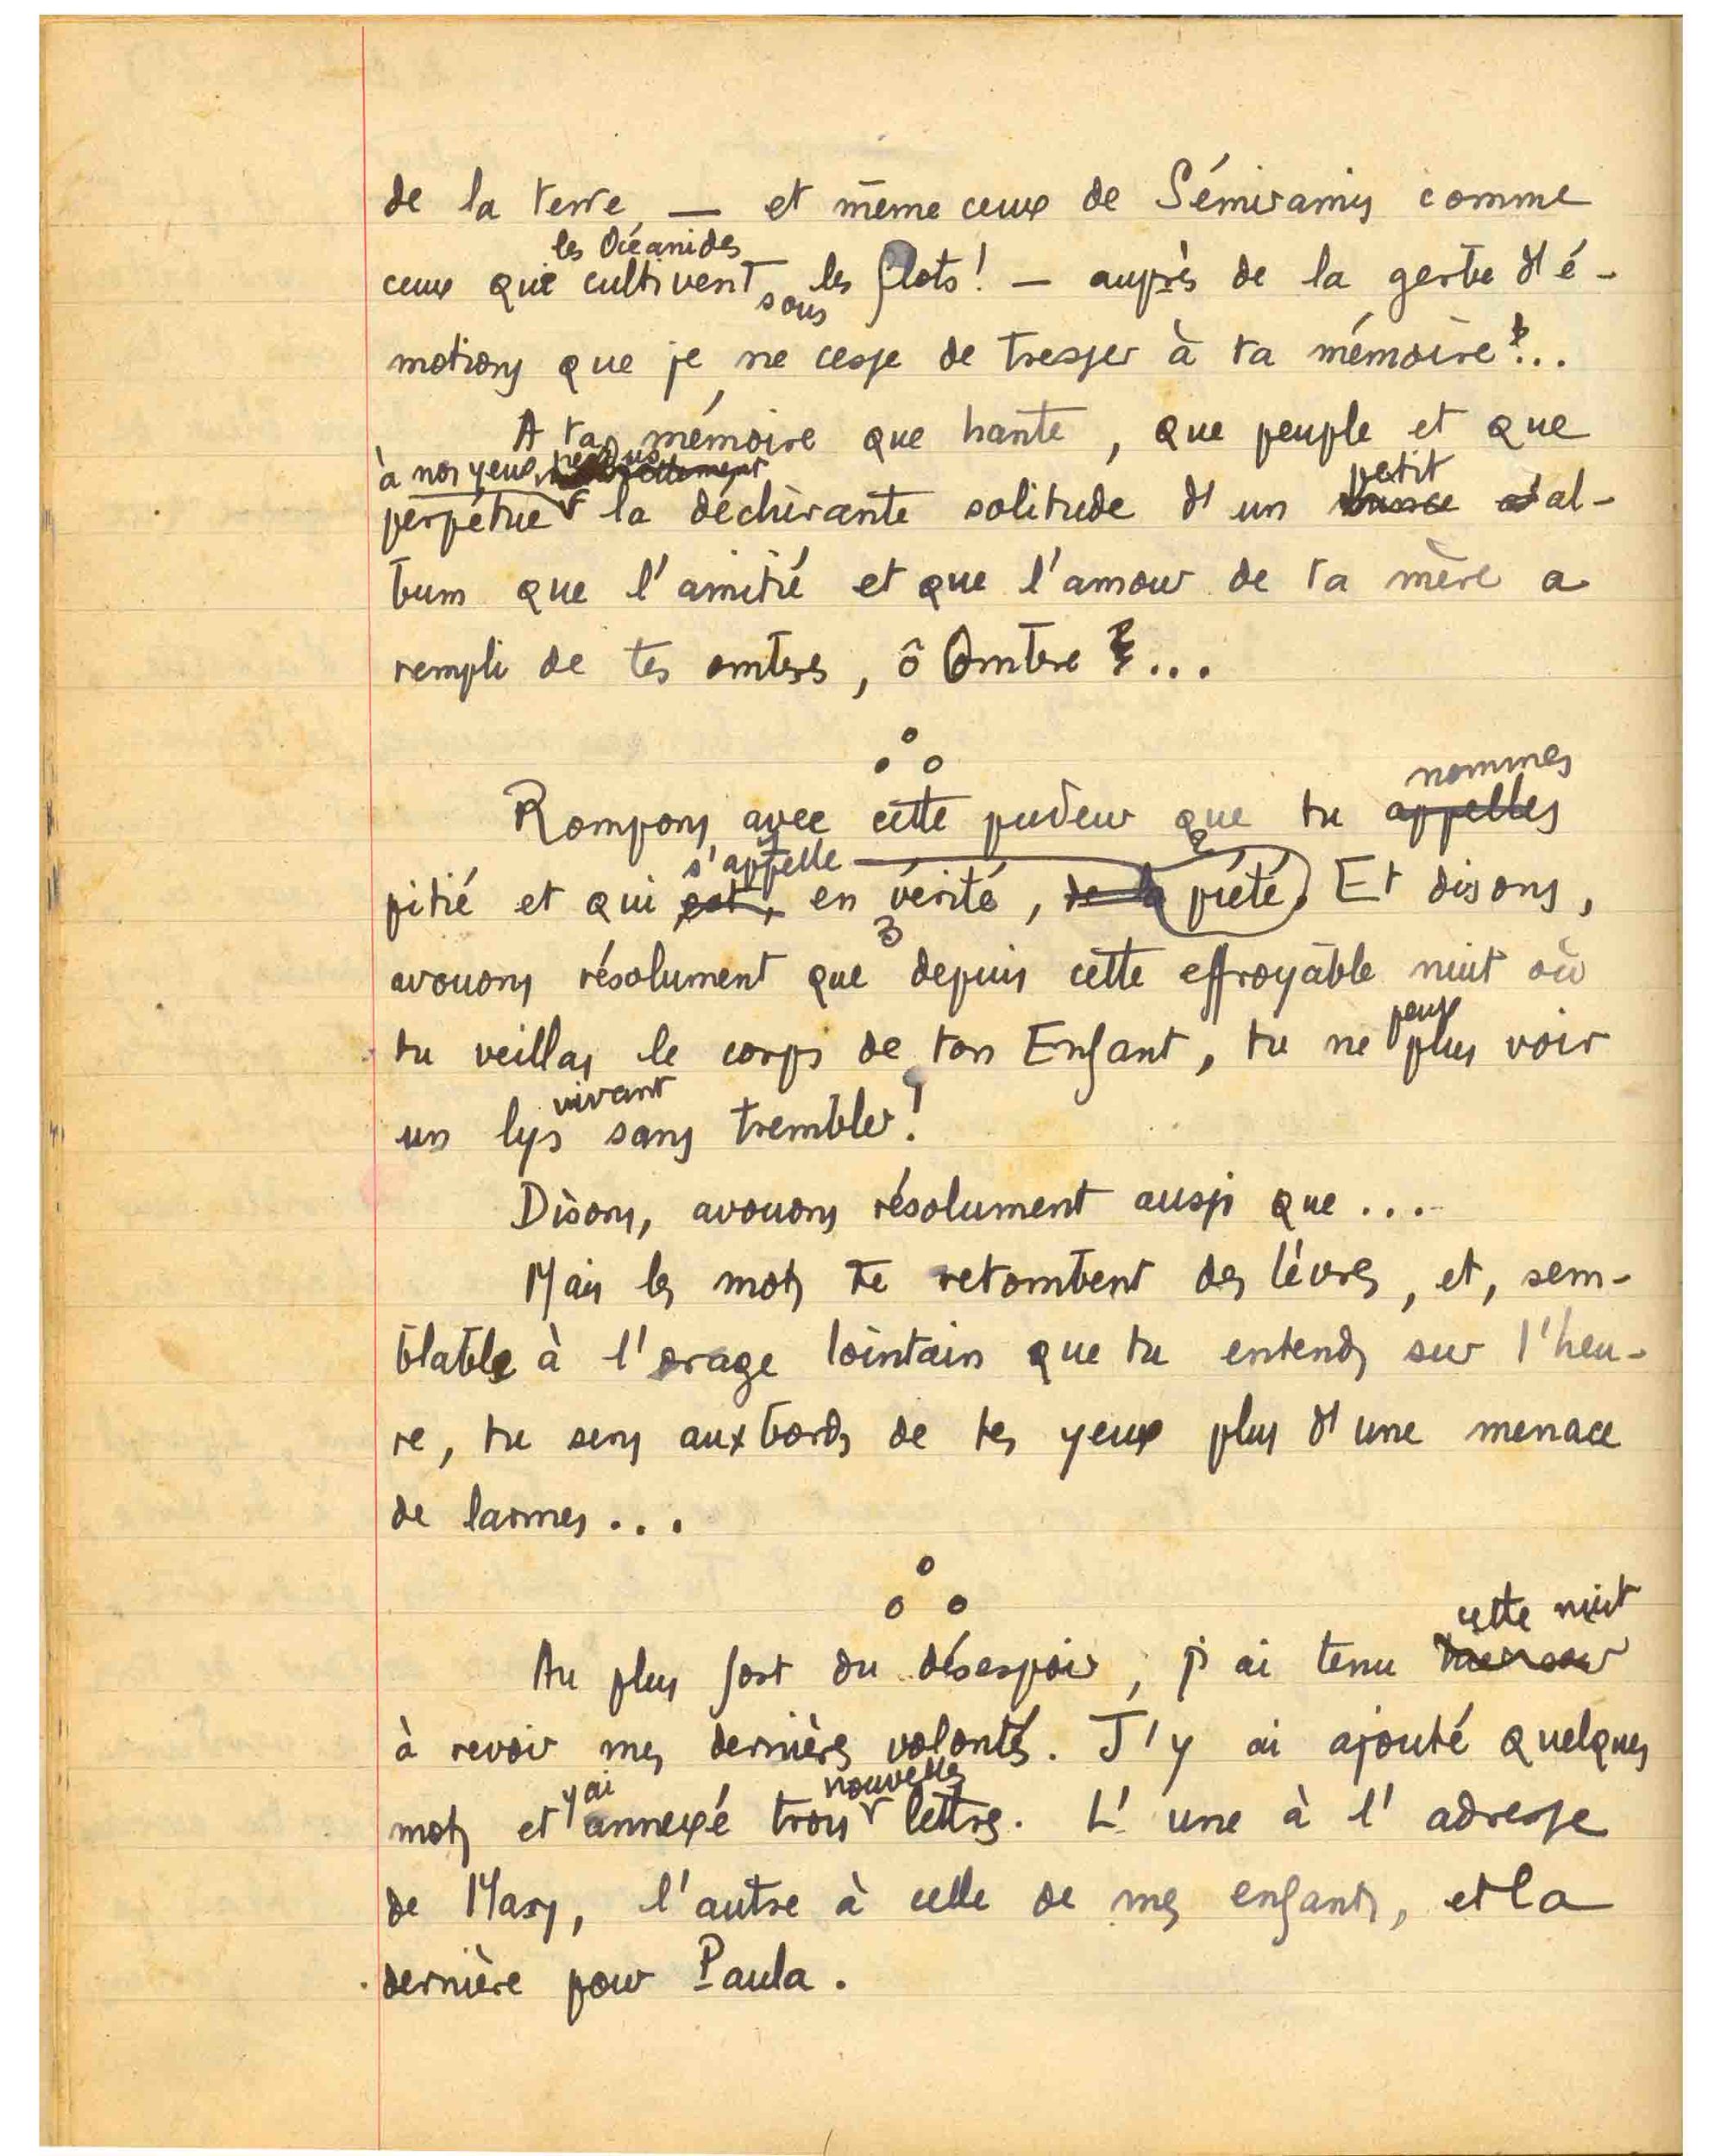 de la terre, — et même ceux de Sémiramis comme
les Océanides
ceux que cultivent sous les flots ! — auprès de la gerbe d'é-
motions que je ne cesse de tresser à ta mémoire !...
A ta mémoire que hante, que peuple et que
à nos yeux
petit
perpétue la déchirante solitude d'un al-
bum que l'amitié et que l'amour de ta mère a
rempli de tes ombres, ô Ombre ...
nommes
Rompons avec cette pudeur que tu appelles
s'appelle
pitié et qui est, en vérité, de la piété. Et disons,
avouons résolument que depuis cette effroyable nuit où
peux
tu veillas le corps de ton Enfant, tu ne plus voir
vivant
un lys sans trembler !
Disons, avouons résolument aussi que ...
Mais les mots te retombent des lèvres, et, sem-
blable à l'orage lointain que tu entends sur l'heu-
re, tu sens aux bords de tes yeux plus d'une menace
de larmes ...
cette nuit
Au plus fort du désespoir, j'ai tenu
à revoir mes dernières volontés. J'y ai ajouté quelques
y ai nouvelles
mots et annexé trois lettres. L'une à l'adresse
de Mary, l'autre à celle de mes enfants, et la
dernière pour Paula.